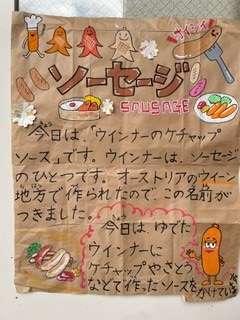 ソーセージ
SAUSAGE
今日は、「ウインナーのケチャップ
ソース」です。ウインナーは、ソーセージ
のひとつです。オーストリアのウィーン
地方で作られたので、この名前が
つきました。
今日は、ゆでた
ウインナーに
ケチャップやさとう
などで作ったソースを
かけている